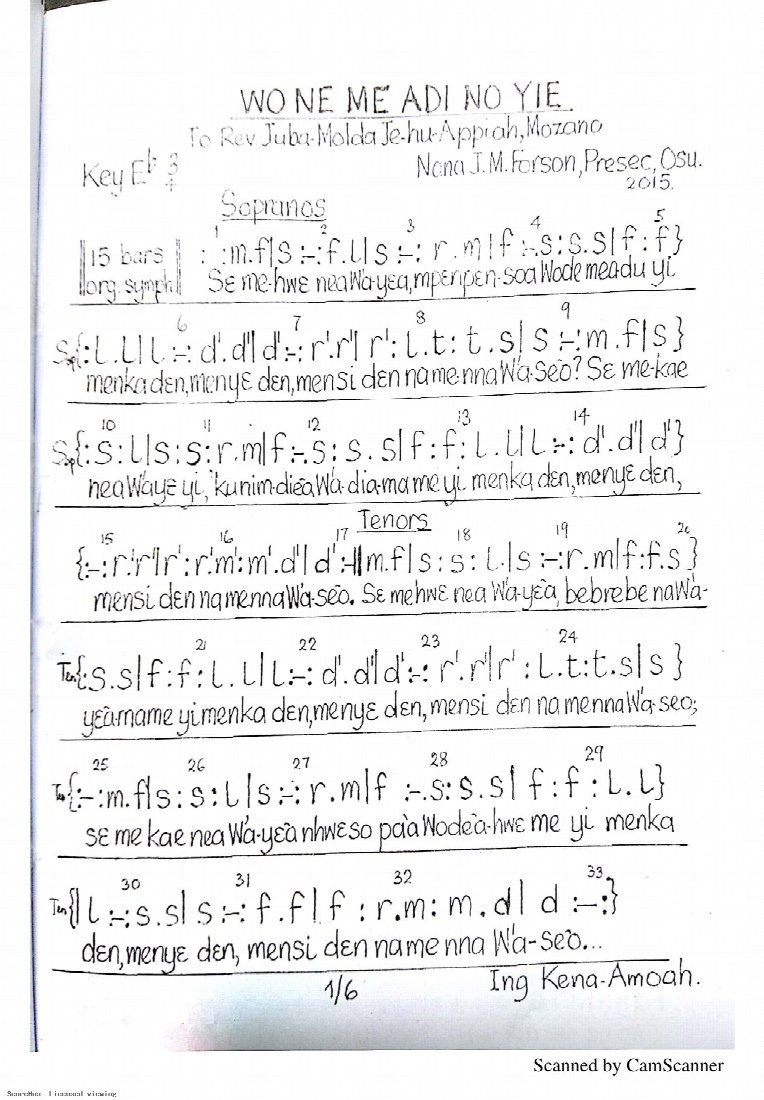 WO NE ME ADI NO YIE
To Rev Juba-Molda Je-hu-Appiah, Mozano
Key E♭ 3/4
Nana J.M. Forson, Presec, Osu.
2015.
Sopranos
1 2 3 4 5
15 bars : :m.f|s :-: f.l|s :-: r.m|f :-.s: s.s|f : f}
org. symph. Sɛ me-hwɛ nea Wa-yɛa, mpɛnpɛn-soa Wode meadu yi
6 7 8 9
Sop{:l.l|l :-: d'.d'|d':-: r'.r'|r': l.t: t.s|s :-:m.f|s}
menka dɛn, menyɛ dɛn, mensi dɛn na me-nna Wa-Seo? Sɛ me-kae
10 11 12 13 14
Sop{:s:l|s:s:r.m|f:-.s: s.s|f:f: l.l|l :-: d'.d'|d'}
nea Wayɛ yi, 'kunim-diea Wa-dia-ma me yi menka dɛn, menyɛ dɛn,
Tenors
15 16 17 18 19 20
{:-:r'.r'|r':r'.m':m'.d'|d':-||m.f|s:s: l|s :-:r.m|f:f.s}
mensi dɛn na menna Wa-seo. Sɛ mehwɛ nea Wa-yɛa, bebrebe na Wa-
21 22 23 24
Ten{:s.s|f:f:l.l|l:-: d'.d'|d':-: r'.r'|r' : l.t:t.s|s}
yɛa-ma me yi menka dɛn, menyɛ dɛn, mensi dɛn na menna Wa-seo;
25 26 27 28 29
Ten{:-:m.f|s:s:l|s:-: r.m|f :-.s: s.s| f:f : l.l}
sɛ me kae nea Wa-yɛa nhwɛso pa'a Wode'a-hwɛ me yi menka
30 31 32 33
Ten{|l :-:s.s|s:-: f.f|f : r.m: m.d| d :-:}
dɛn, menyɛ dɛn, mensi dɛn na me nna Wa-Seo...
1/6
Ing Kena-Amoah.
Scanned by CamScanner